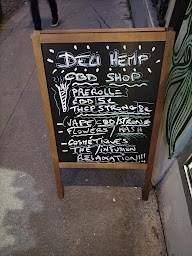 DELI HEMP
CBD SHOP
PREROLLE:
CBD 5€
- (VAPE) CBD/STRONG
FLOWERS / HASH
- COSMÉTIQUES
- THÉ/INFUSION
RELAXATION!!!